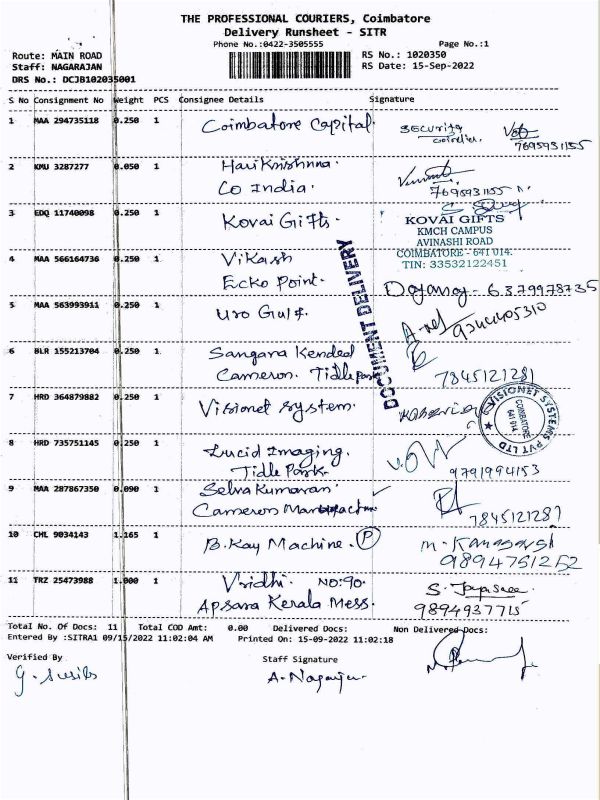 THE PROFESSIONAL COURIERS, Coimbatore
Delivery Runsheet - SITR
Phone No.:0422-3505555 Page No.:1
Route: MAIN ROAD RS No.: 1020350
Staff: NAGARAJAN RS Date: 15-Sep-2022
DRS No.: DCJB102035001
S No Consignment No Weight PCS Consignee Details Signature
1 MAA 294735118 0.250 1 Coimbatore Capital. Security
7695931155
2 KMU 3287277 0.050 1 Harikrishnna.
Co India. 7695931155
3 EDQ 11740098 0.250 1 Kovai Gifts.
KOVAI GIFTS
KMCH CAMPUS
AVINASHI ROAD
COIMBATORE - 641 014.
TIN: 33532122451
4 MAA 566164736 0.250 1 Vikash
Ecko Point.
DOCUMENT DELIVERY
5 MAA 563993911 0.250 1 Uro Gulf.
6 BLR 155213704 0.250 1 Sangara Kended
Cameron. Tidle Park 7845121281
7 HRD 364879882 0.250 1 Visionet System.
VISIONET SYSTEMS PVT LTD
COIMBATORE
641 014
8 HRD 735751145 0.250 1 Lucid Imaging.
Tidle Park. 9791994153
9 MAA 287867350 0.090 1 Selva Kumaran
Cameron 7845121281
10 CML 9034143 1.165 1 B.Kay Machine. P
9894751252
11 TRZ 25473988 1.000 1 Vridhi. NO:90.
Apsara Kerala Mess. 9894937715
Total No. Of Docs: 11 Total COD Amt: 0.00 Delivered Docs: Non Delivered Docs:
Entered By :SITRA1 09/15/2022 11:02:04 AM Printed On: 15-09-2022 11:02:18
Verified By Staff Signature